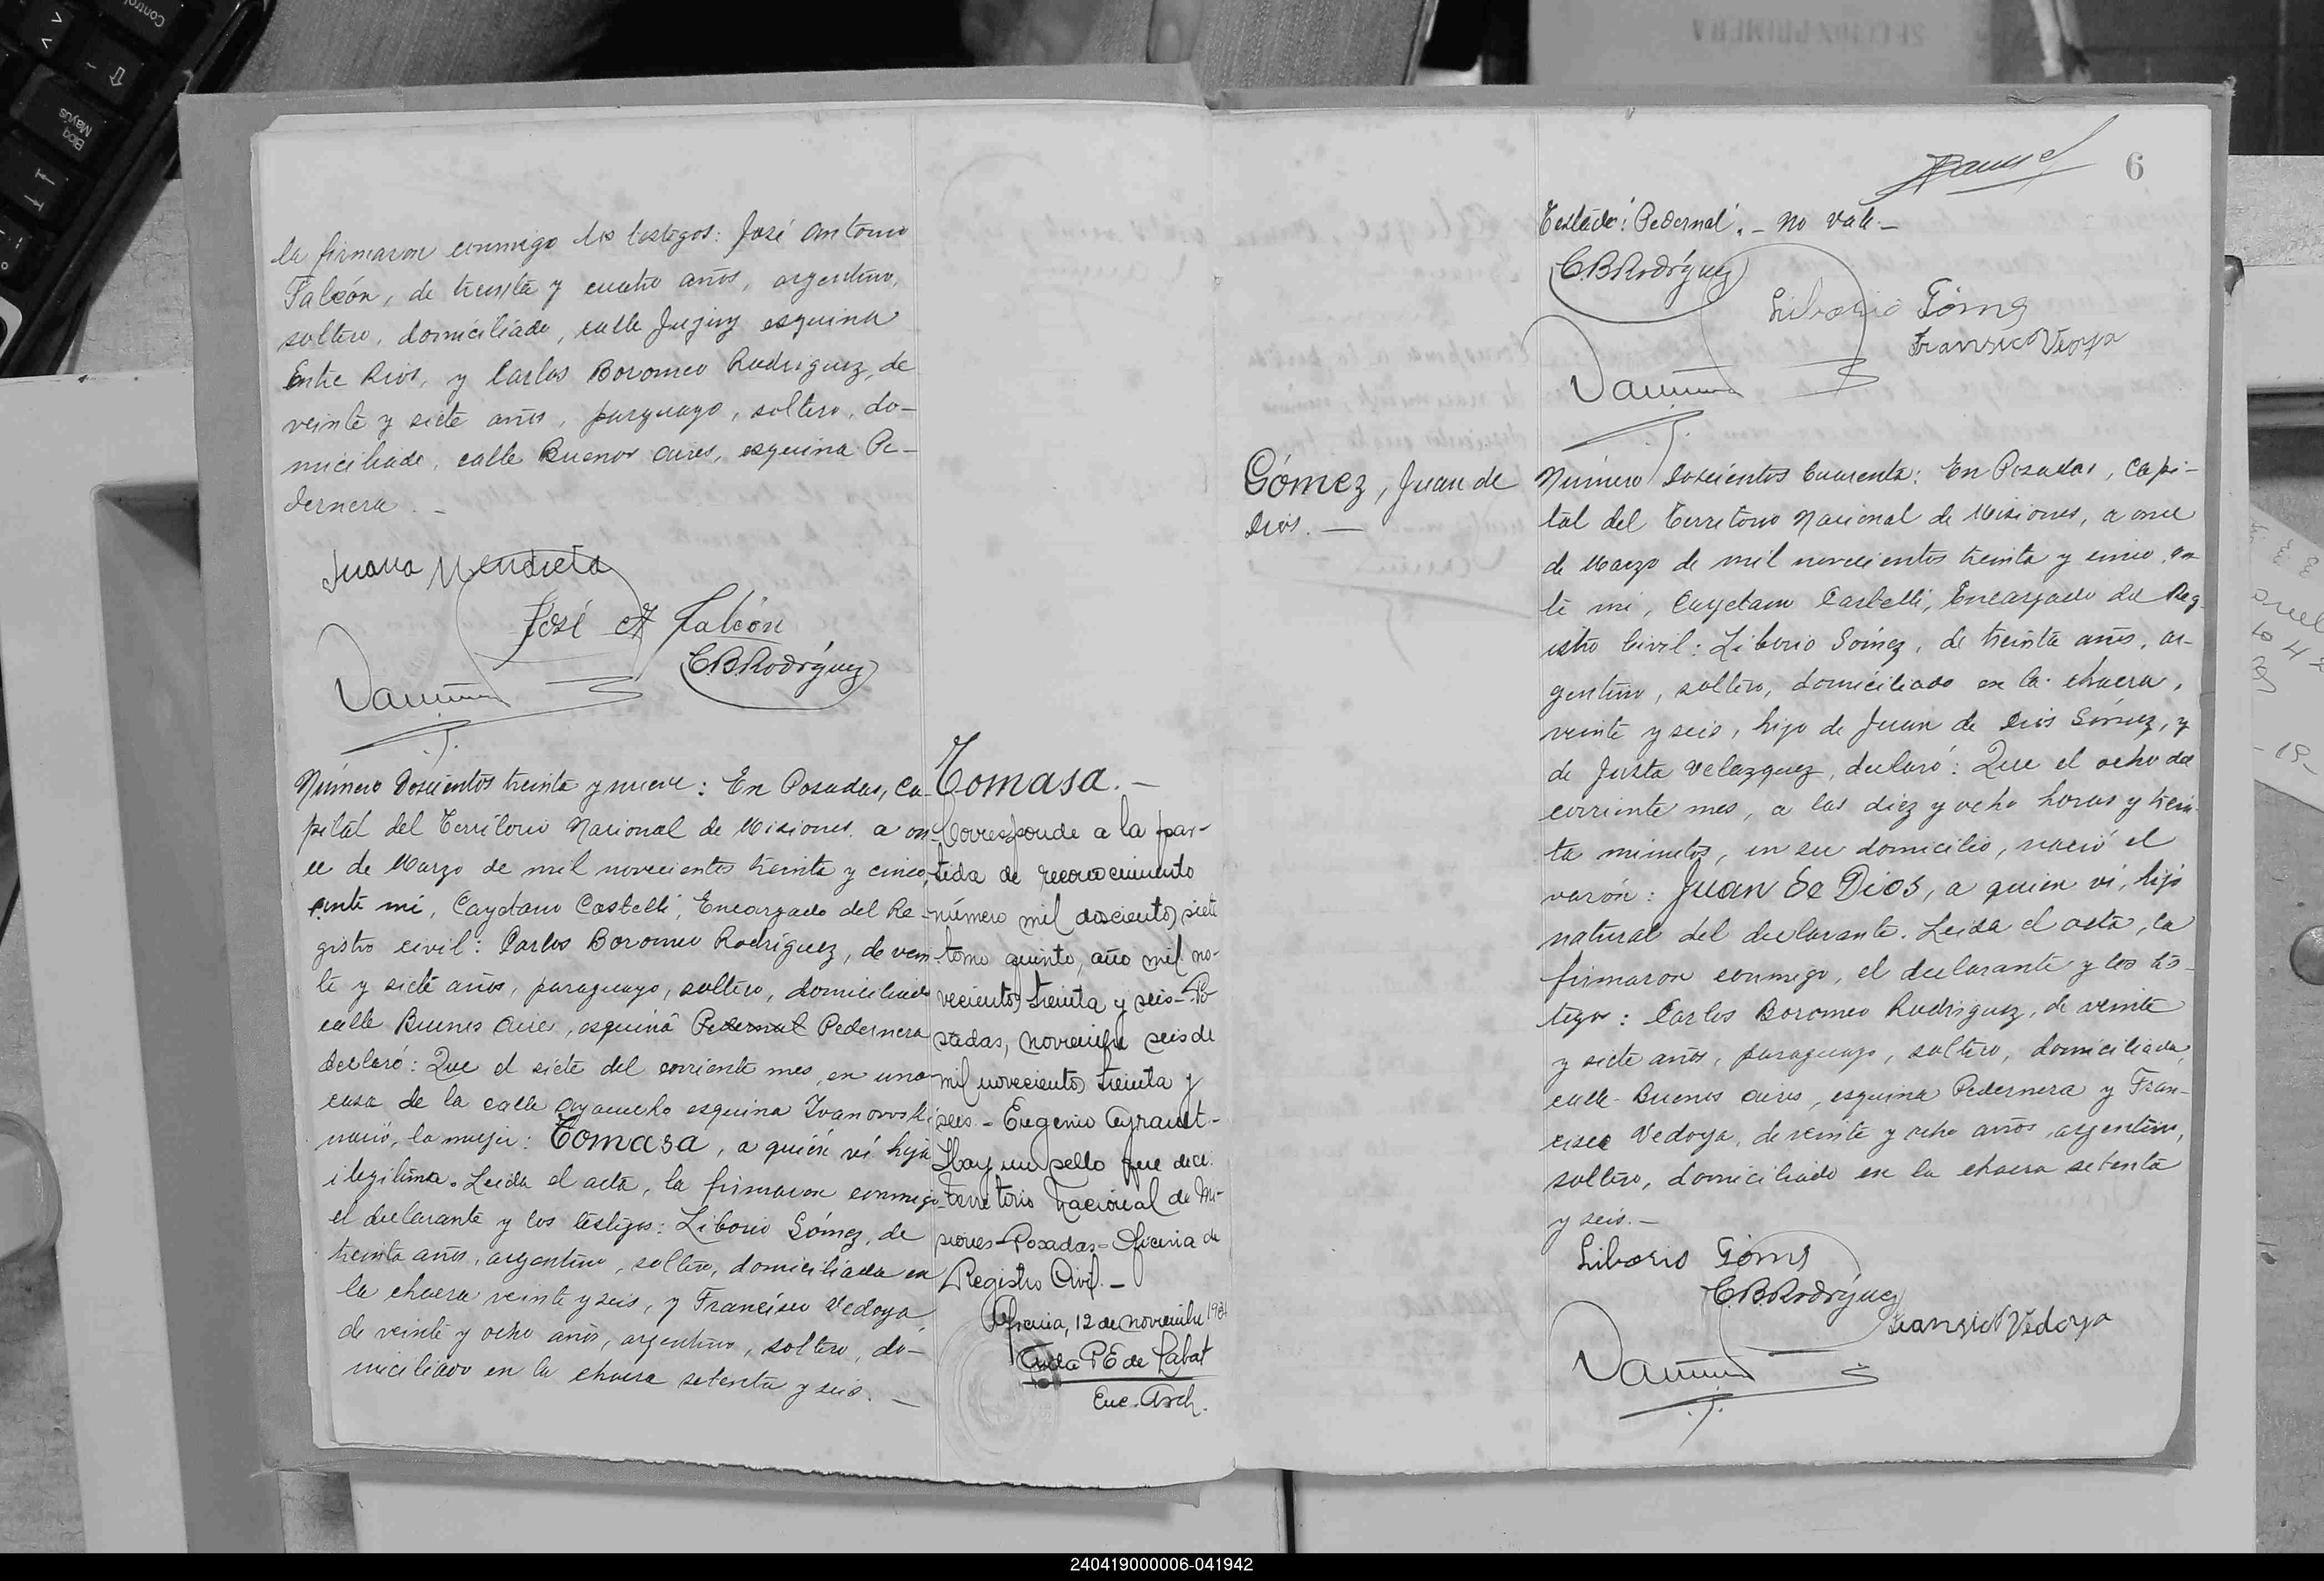 la firmaron conmigo los testigos: José Antonio
Falcón, de treinta y cuatro años, argentino,
soltero, domiciliado, calle Jujuy esquina
Entre Rios, y Carlos Boromeo Rodriguez, de
veinte y siete años, parguayo, soltero, do-
miciliado, calle Buenos Aires, esquina Pe-
dernera.-
Juana Mendieta
José A Falcón
C.B.Rodríguez
Número Doscientos treinta y nueve: En Posadas, Ca-
pital del Territorio Nacional de Misiones, a on
ce de Marzo de mil novecientos treinta y cinco,
ante mí, Cayetano Castelli, Encargado del Re-
gistro civil: Carlos Boromeo Rodríguez, de vein
te y siete años, paraguayo, soltero, domiciliado
calle Buenos Aires, esquina Pedernal Pedernera
declaró: Que el siete del corriente mes, en una
casa de la calle Ayacucho esquina Ivanowski
nació, la mujer: Tomasa, a quién ví hija
ilegítima. Leida el acta, la firmaron conmigo
el declarante y los testigos: Liborio Gómez, de
treinta años, argentino, soltero, domiciliado en
la chacra veinte y seis, y Francisco Vedoya
de veinte y ocho años, argentino, soltero, do-
miciliado en la chacra setenta y seis.-
Tomasa.-
Corresponde a la par-
tida de reconocimiento
número mil doscientos siete
tomo quinto, año mil no-
vecientos treinta y seis-Po
sadas, noviembre seis de
mil novecientos treinta y
seis.- Eugenio
Hay un sello que dice:
Territorio Nacional de Mi-
siones-Posadas-Oficina de
Registro Civil.-
Oficina, 12 de noviembre
PE de Labat
Enc. Arch.
6
Testado: Pedernal.- no vale-
C.B.Rodríguez
Liborio Gómz
Fransico Vedoya
Gómez, Juan de
Dios.-
Número Doscientos Cuarenta: En Posadas, Capi-
tal del Territorio Nacional de Misiones, a once
de Marzo de mil novecientos treinta y cinco, an
te mí, Cayetano Castelli, Encargado del Reg-
istro Civil: Liborio Gómez, de treinta años, ar-
gentino, soltero, domiciliado en la chacra,
veinte y seis, hijo de Juan de Dios Gómez, y
de Justa Velazquez, declaró: Que el ocho del
corriente mes, a las diez y ocho horas y trein-
ta minutos, en su domicilio, nació el
varón: Juan de Dios, a quien ví, hijo
natural del declarante. Leida el acta, la
firmaron conmigo, el declarante y los tes-
tigos: Carlos Boromeo Rodriguez, de veinte
y siete años, paraguayo, soltero, domiciliado,
calle Buenos Aires, esquina Pedernera y Fran-
cisco Vedoya, de veinte y ocho años, argentino,
soltero, domiciliado en la chacra setenta
y seis.-
Liborio Gómz
C.B.Rodríguez
Fransico Vedoya
240419000006-041942